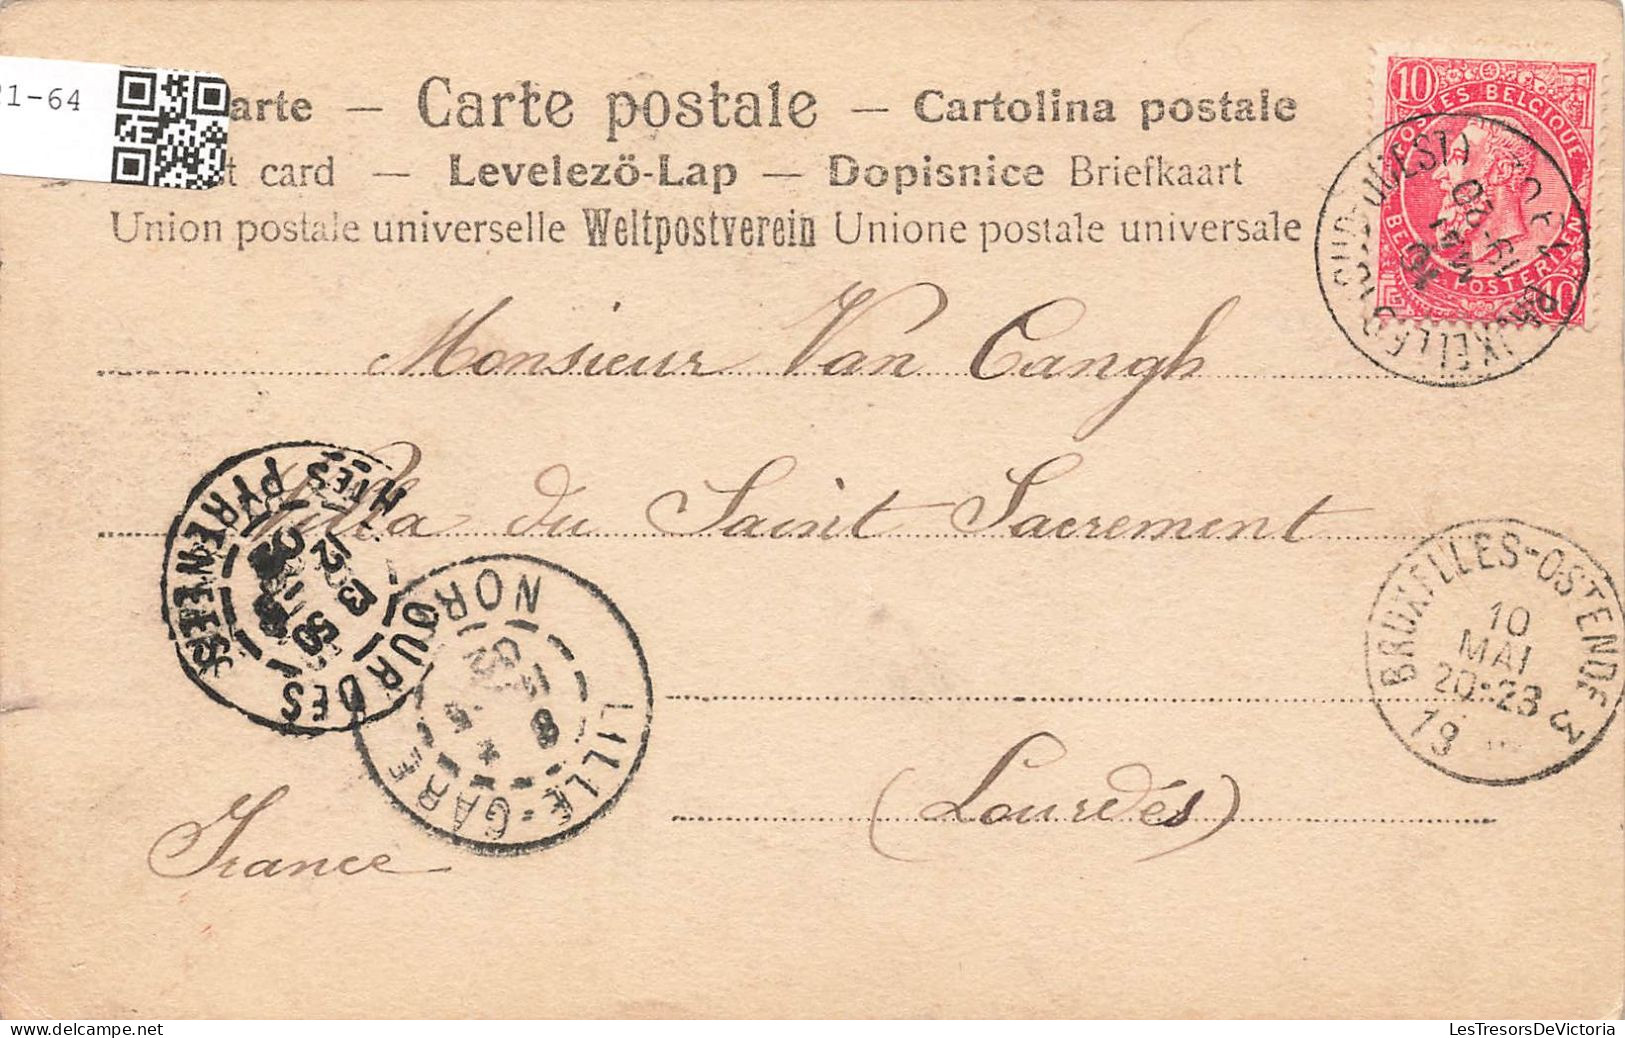 21-64
arte — Carte postale — Cartolina postale
card — Levelezö-Lap — Dopisnice Briefkaart
Union postale universelle Weltpostverein Unione postale universale
10 10
POSTES BELGIQUE
BRUXELLES
19-20
10
MAI
Monsieur Van Cangh
Villa du Saint Sacrement
LOURDES
HTES PYRENEES
LILLE-GARE
NORD
BRUXELLES-OSTENDE 3
10
MAI
20-23
19
(Lourdés)
France
LesTresorsDeVictoria